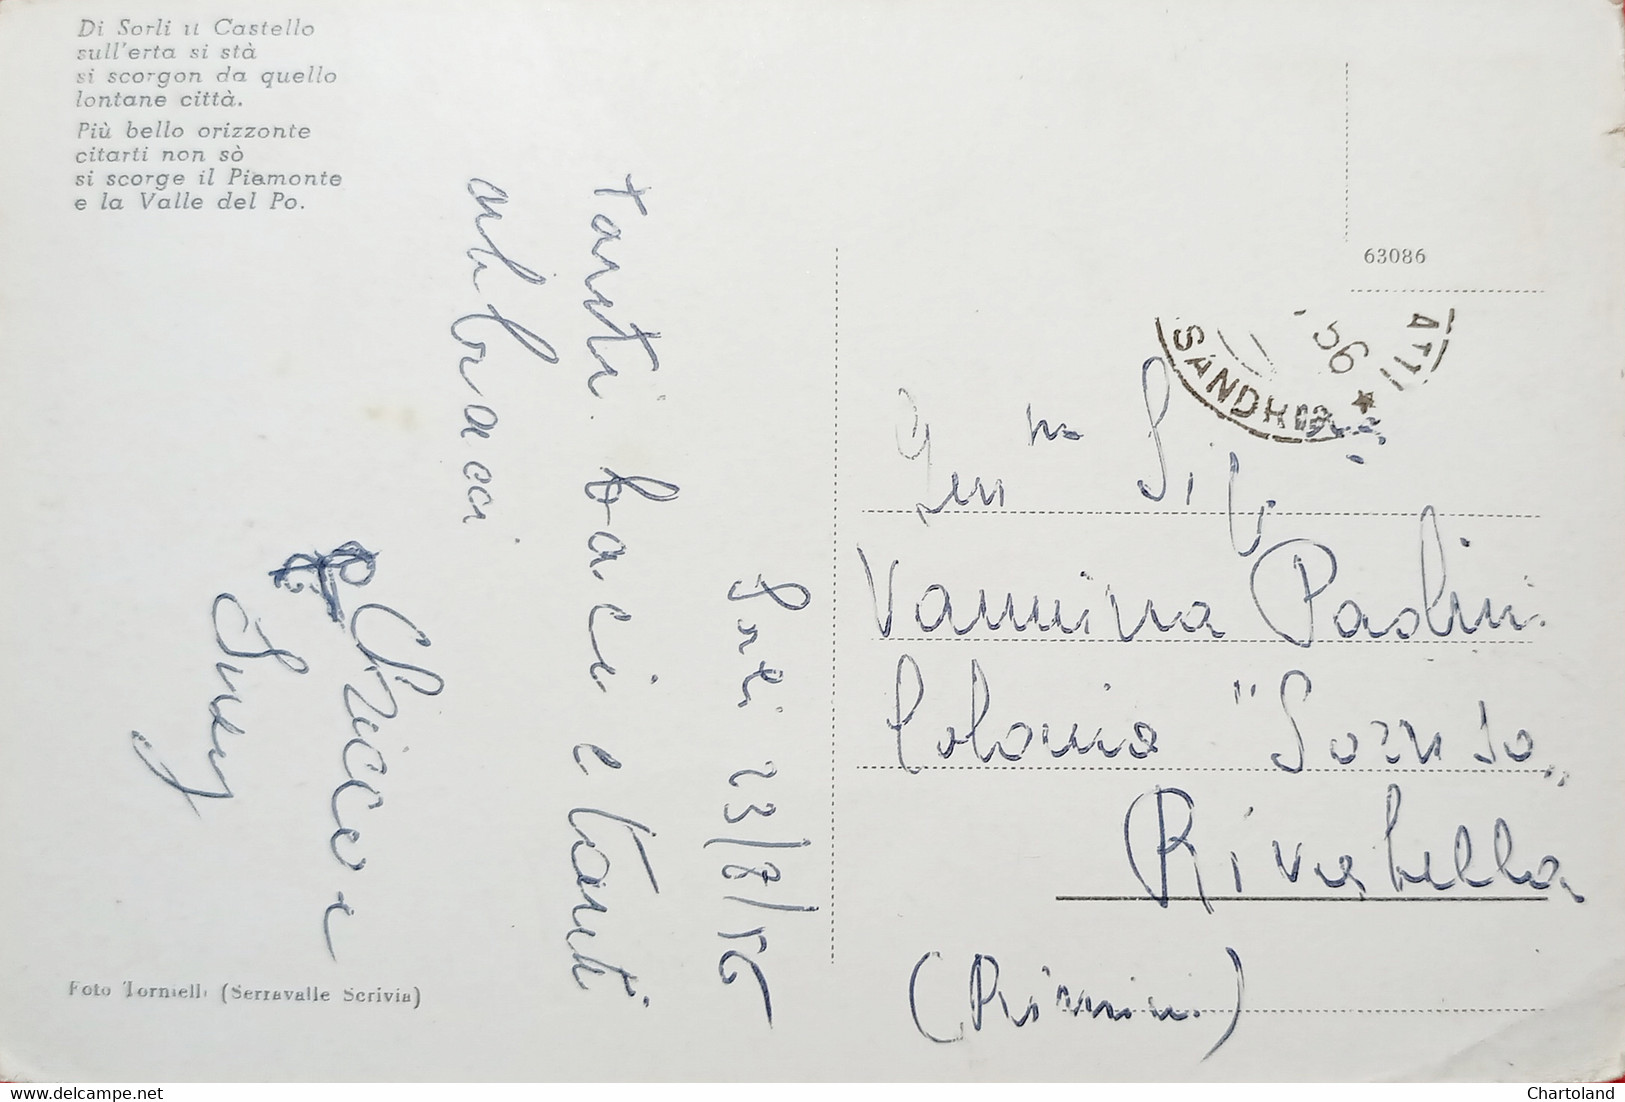 Di Sorli il Castello
sull'erta si stà
si scorgon da quello
lontane città.
Più bello orizzonte
citarti non sò
si scorge il Piemonte
e la Valle del Po.
63086
56
SANDH
Sorli 23/8/56
tanti baci e tanti
abbracci
e
Foto Tornielli (Serravalle Scrivia)
Gen ma Sig.
Vannina Paolini
Colonia "Sorriso"
Rivabella
(Rimini)
delcampe.net
Chartoland